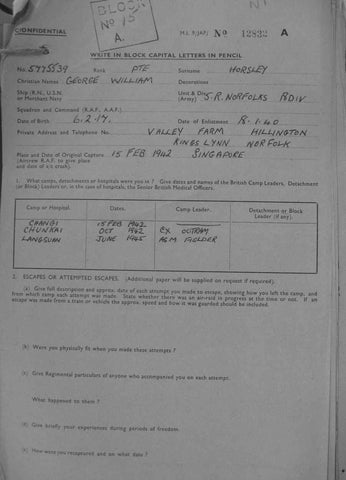 BLOCK
Nº 15
A.
CONFIDENTIAL
M.I. 9/JAP/ Nº 12832 A
WRITE IN BLOCK CAPITAL LETTERS IN PENCIL
No. 5775539 Rank PTE Surname HORSLEY
Christian Names GEORGE WILLIAM Decorations
Ship (R.N., U.S.N. or Merchant Navy) Unit & Div. (Army) 5.R.NORFOLKS 18DIV
Squadron and Command (R.A.F., A.A.F.)
Date of Birth 6.2.17. Date of Enlistment 18.1.40
Private Address and Telephone No. VALLEY FARM HILLINGTON
KINGS LYNN NORFOLK
Place and Date of Original Capture 15 FEB 1942 SINGAPORE
(Aircrew R.A.F. to give place
and date of a/c crash).
1. What camps, detachments or hospitals were you in? Give dates and names of the British Camp Leaders, Detachment
(or Block) Leaders or, in the case of hospitals, the Senior British Medical Officers.
Camp or Hospital. Dates. Camp Leader. Detachment or Block Leader (if any).
CHANGI 15 FEB 1942
CHUNKAI OCT 1942 OUTRAM
LANGSUAN JUNE 1945 RSM FIELDER
2. ESCAPES OR ATTEMPTED ESCAPES. (Additional paper will be supplied on request if required).
(a) Give full description and approx. date of each attempt you made to escape, showing how you left the camp, and
from which camp each attempt was made. State whether there was an air-raid in progress at the time or not. If an
escape was made from a train or vehicle the approx. speed and how it was guarded should be included.
(b) Were you physically fit when you made these attempts?
(c) Give Regimental particulars of anyone who accompanied you on each attempt.
What happened to them?
(d) Give briefly your experiences during periods of freedom.
(e) How were you recaptured and on what date?